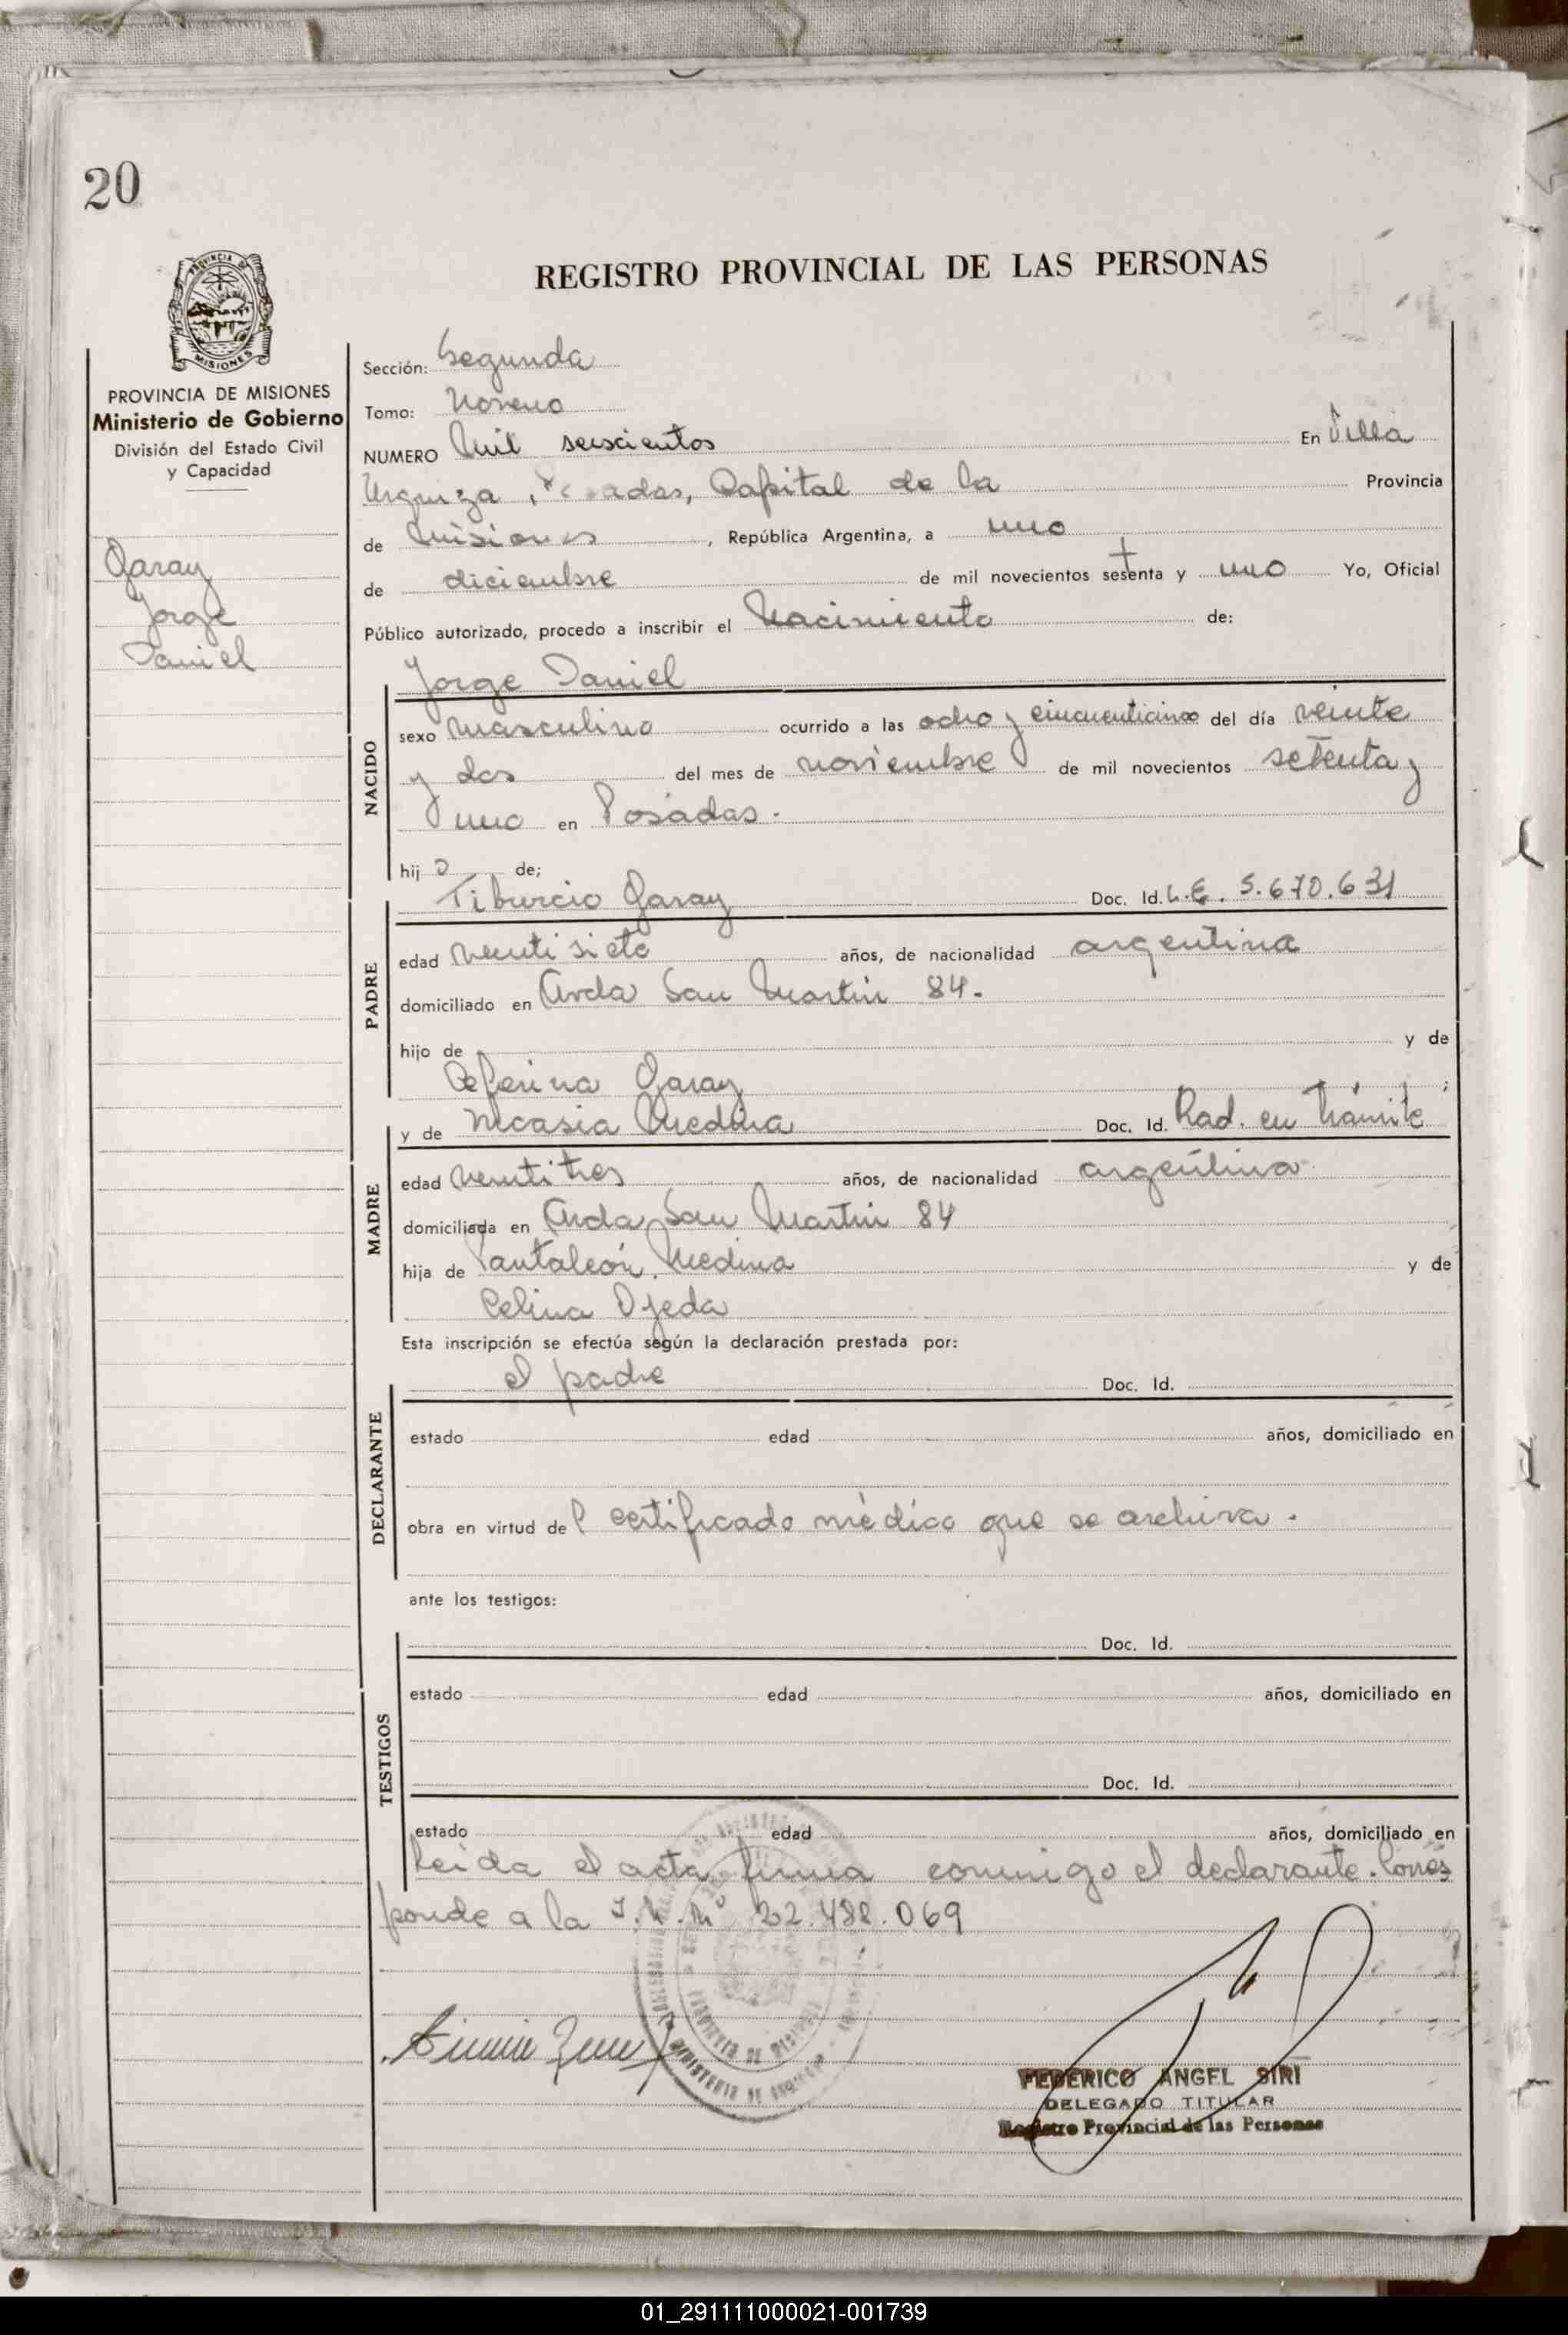 20
REGISTRO PROVINCIAL DE LAS PERSONAS
PROVINCIA DE MISIONES
MISIONES
PROVINCIA DE MISIONES
Ministerio de Gobierno
División del Estado Civil
y Capacidad
Garay
Jorge
Daniel
Sección: Segunda
Tomo: Noveno
NUMERO Mil seiscientos En Villa
Urquiza, Posadas, Capital de la Provincia
de Misiones, República Argentina, a uno
de diciembre de mil novecientos setenta y uno Yo, Oficial
Público autorizado, procedo a inscribir el Nacimiento de:
Jorge Daniel
NACIDO
sexo masculino ocurrido a las ocho y cincuenticinco del día veinte
y dos del mes de noviembre de mil novecientos setenta y
uno en Posadas.
hijo de;
Tiburcio Garay Doc. Id. L.E. 5.670.631
PADRE
edad veintisiete años, de nacionalidad argentina
domiciliado en Avda San Martín 84.
hijo de y de
Ceferina Garay ;
y de Nicasia Medina Doc. Id. Rad. en trámite
MADRE
edad veintitres años, de nacionalidad argentina
domiciliada en Avda San Martín 84
hija de Pantaleón Medina y de
Celina Ojeda
Esta inscripción se efectúa según la declaración prestada por:
el padre Doc. Id.
DECLARANTE
estado edad años, domiciliado en
obra en virtud del certificado médico que se archiva.
ante los testigos:
Doc. Id.
TESTIGOS
estado edad años, domiciliado en
Doc. Id.
estado edad años, domiciliado en
Leida el acta, firma conmigo el declarante. Corres
ponde a la Nº 22.488.069
FEDERICO ANGEL SIRI
DELEGADO TITULAR
Registro Provincial de las Personas
01_291111000021-001739